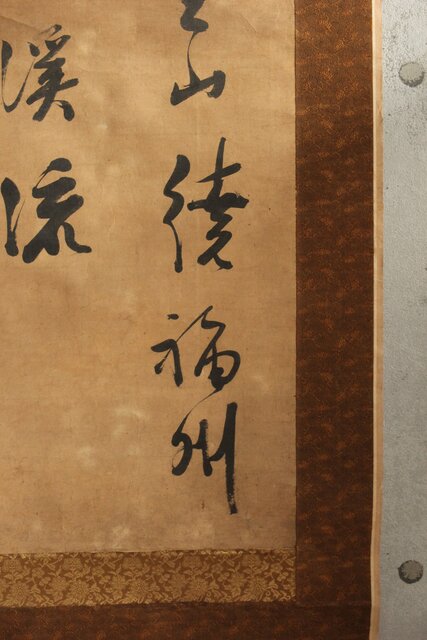 山繞福州
溪流